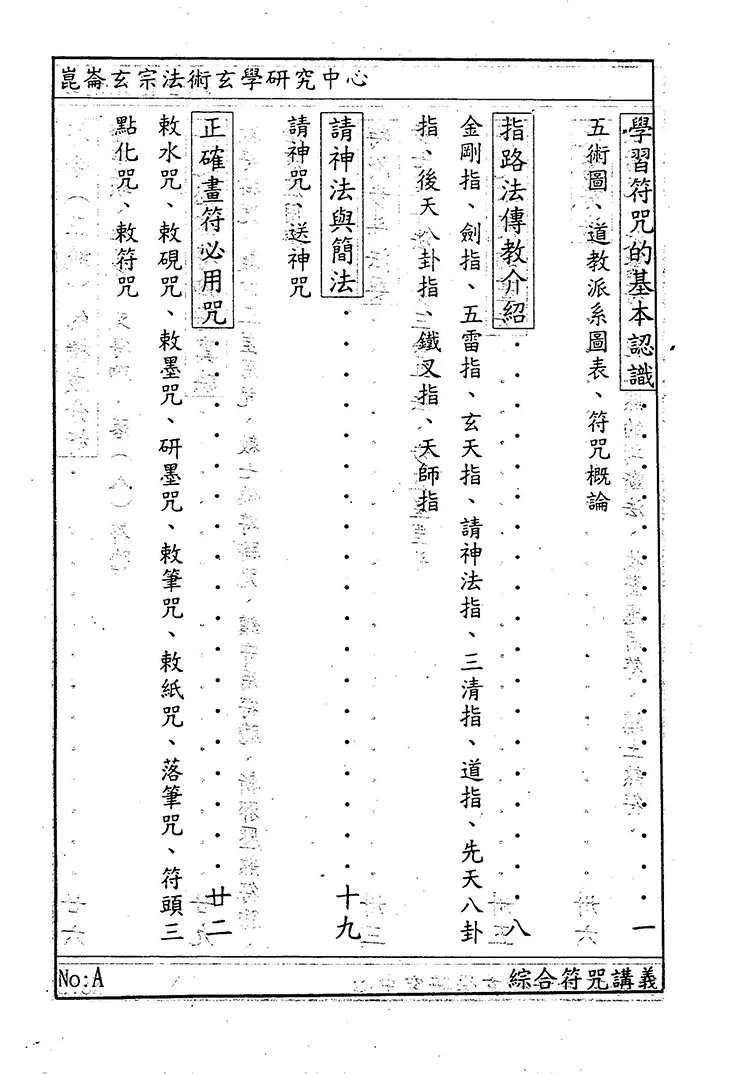 崑崙玄宗法術玄學研究中心
學習符咒的基本認識‧‧‧‧‧‧‧‧‧‧‧‧‧‧‧‧‧‧‧‧一
五術圖、道教派系圖表、符咒概論
指路法傳教介紹‧‧‧‧‧‧‧‧‧‧‧‧‧‧‧‧‧‧‧‧‧‧八
金剛指、劍指、五雷指、玄天指、請神法指、三清指、道指、先天八卦
指、後天八卦指、鐵叉指、天師指
請神法與簡法‧‧‧‧‧‧‧‧‧‧‧‧‧‧‧‧‧‧‧‧‧‧十九
請神咒、送神咒
正確畫符必用咒‧‧‧‧‧‧‧‧‧‧‧‧‧‧‧‧‧‧‧‧‧廿二
敕水咒、敕硯咒、敕墨咒、研墨咒、敕筆咒、敕紙咒、落筆咒、符頭三
點化咒、敕符咒
No:A
綜合符咒講義